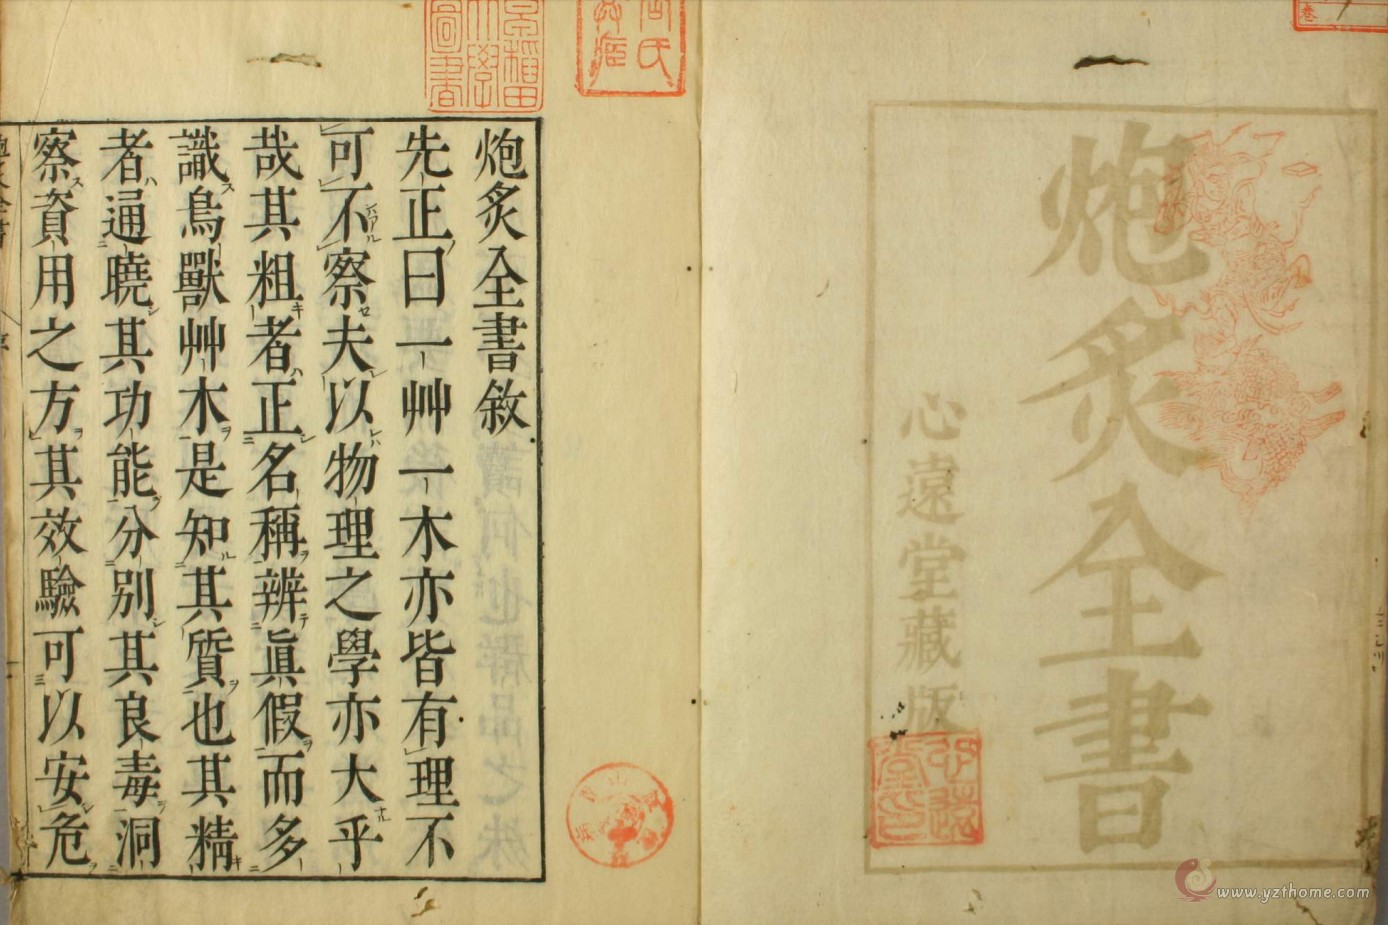 炮炙全書
心遠堂藏版
心遠堂印
早稻田大學圖書
炮炙全書敘
先正曰一艸一木亦皆有理不
可不察夫以物理之學亦大乎
哉其粗者正名稱辨眞假而多
識鳥獸艸木是知其質也其精
者通曉其功能分別其良毒洞
察資用之方其效驗可以安危
www.yzthome.com